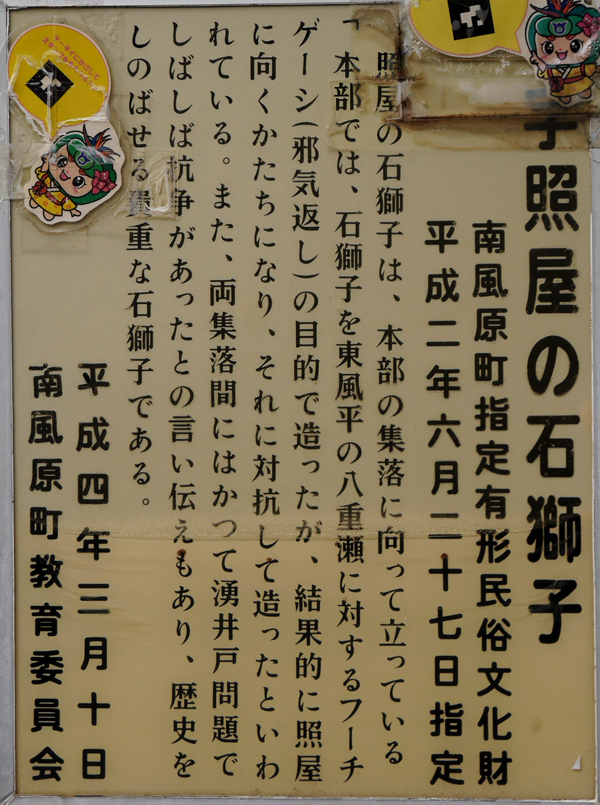 字照屋の石獅子
南風原町指定有形民俗文化財
平成二年六月二十七日指定
照屋の石獅子は、本部の集落に向って立っている
「本部では、石獅子を東風平の八重瀬に対するフーチ
ゲーシ(邪気返し)の目的で造ったが、結果的に照屋
に向くかたちになり、それに対抗して造ったといわ
れている。また、両集落間にはかつて湧井戸問題で
しばしば抗争があったとの言い伝えもあり、歴史を
しのばせる貴重な石獅子である。
平成四年三月十日
南風原町教育委員会